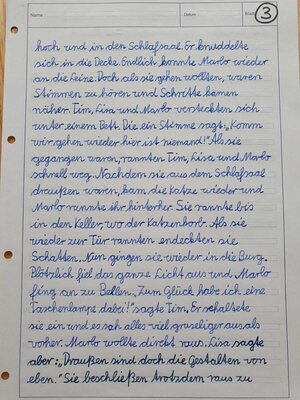 Name
Datum
Blatt
3
hoch und in den Schlafsaal. Er knuddelte
sich in die Decke. Endlich konnte Marlo wieder
an die Leine. Doch als sie gehen wollten, waren
Stimmen zu hören und Schritte kamen
näher. Tim, Lisa und Marlo versteckten sich
unter einem Bett. Die ein Stimme sagt: „Komm
wir gehen wieder hier ist niemand!" Als sie
gegangen waren, rannten Tim, Lisa und Marlo
schnell weg. Nachdem sie aus dem Schlafsaal
draußen waren, kam, die Katze wieder und
Marlo rannte ihr hinterher. Sie rannte bis
in den Keller, wo der Katzenkorb. Als sie
wieder zur Tür rannten endeckten sie
Schatten. Nun gingen sie wieder in die Burg.
Plötzlich fiel das ganze Licht aus und Marlo
fing an zu Bellen. „Zum Glück habe ich eine
Taschenlampe dabei!" sagte Tim. Er schaltete
sie ein und es sah alles viel gruseliger aus als
vorher. Marlo wollte direkt raus. Lisa sagte
aber: „Draußen sind doch die Gestalten von
eben." Sie beschließen trotzdem raus zu